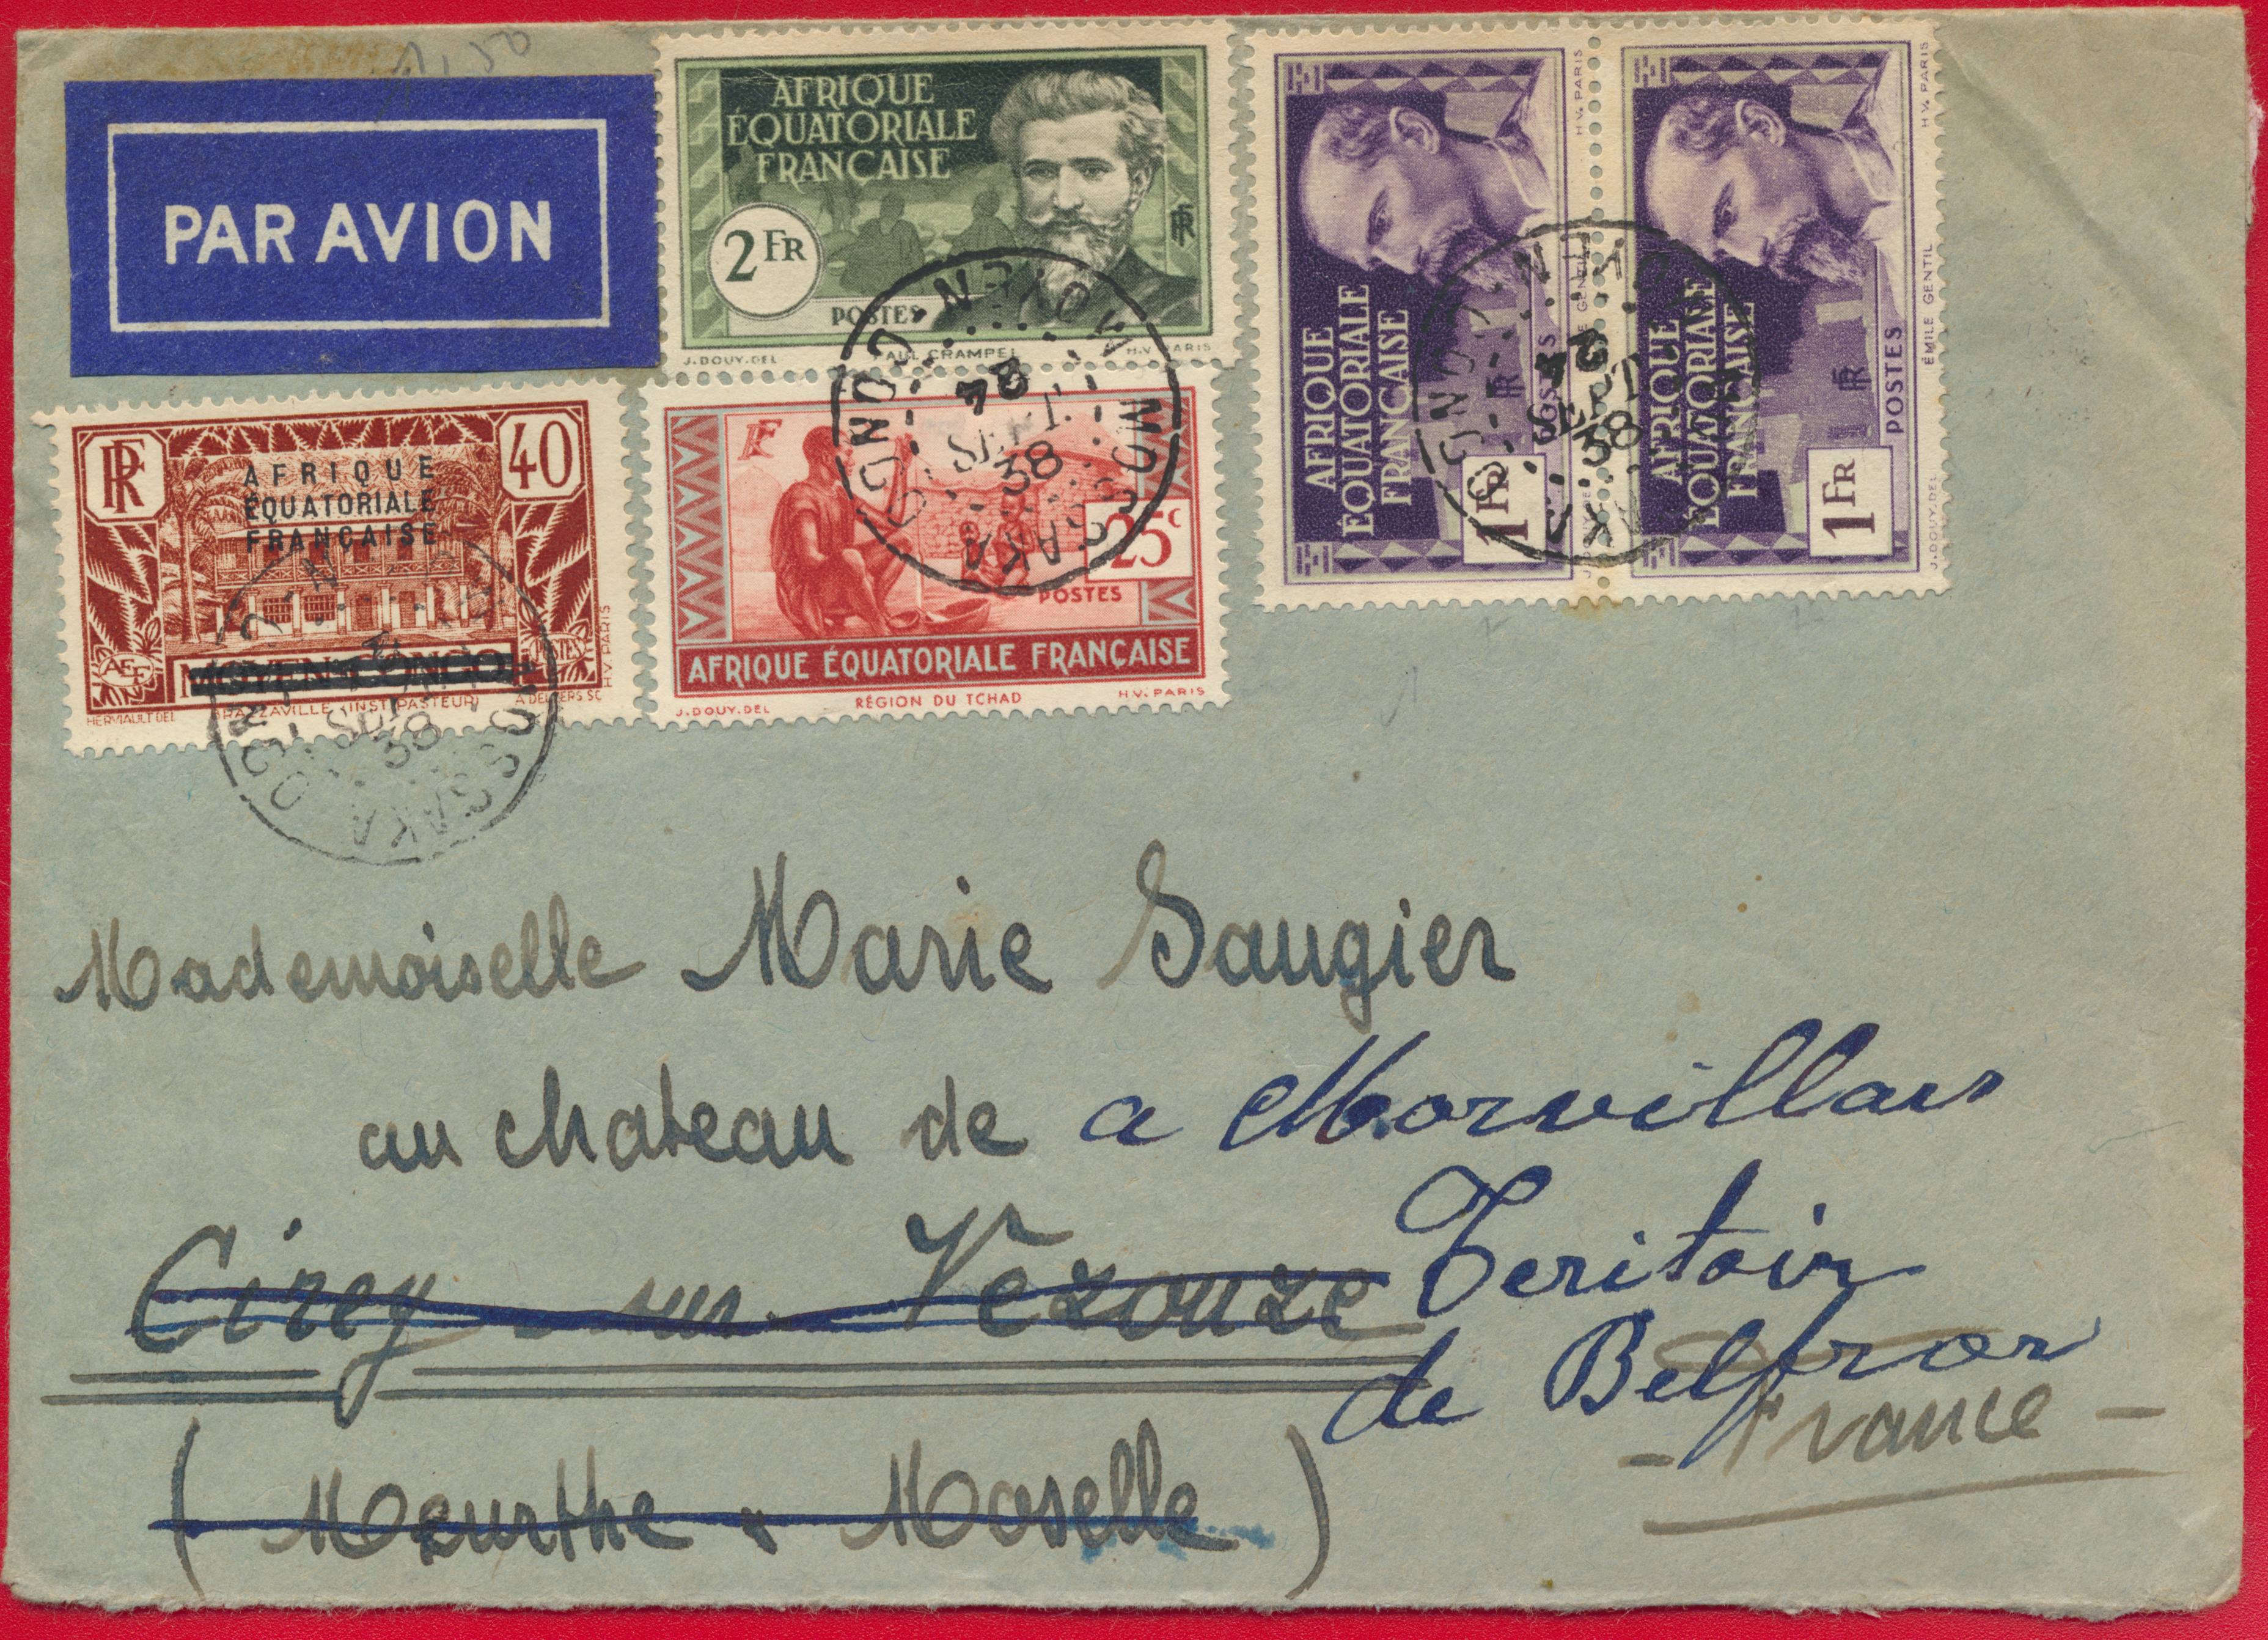 1,50
PAR AVION
AFRIQUE
ÉQUATORIALE
FRANÇAISE
2 FR
POSTES
RF
J. DOUY. DEL
PAUL CRAMPEL
H.V. PARIS
AFRIQUE
ÉQUATORIALE
FRANÇAISE
1 FR
POSTES
RF
H.V. PARIS
AFRIQUE
ÉQUATORIALE
FRANÇAISE
1 FR
POSTES
RF
J. DOUY. DEL
ÉMILE GENTIL
H.V. PARIS
RF
40
AFRIQUE
ÉQUATORIALE
FRANÇAISE
AEF
MOYEN CONGO
POSTES
HERVIAULT DEL
BRAZZAVILLE (INST. PASTEUR)
A. DELZERS SC
H.V. PARIS
25c
POSTES
AFRIQUE ÉQUATORIALE FRANÇAISE
J. DOUY. DEL
RÉGION DU TCHAD
H.V. PARIS
MOSSAKA
MOYEN-CONGO
24
SEPT
38
MOSSAKA
MOYEN-CONGO
24
SEPT
38
MOSSAKA
MOYEN-CONGO
SEPT
38
Mademoiselle Marie Saugier
au chateau de a Morvillars
Cirey sur Vezouze Teritoir
de Belfror
(Meurthe & Moselle)
- France -